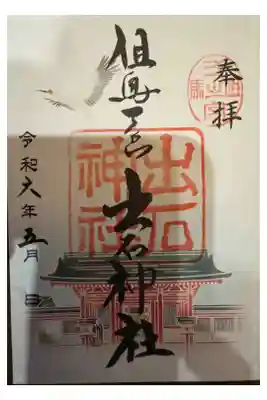 奉拝
但馬一宮 出石神社
出石
神社
令和六年五月 日